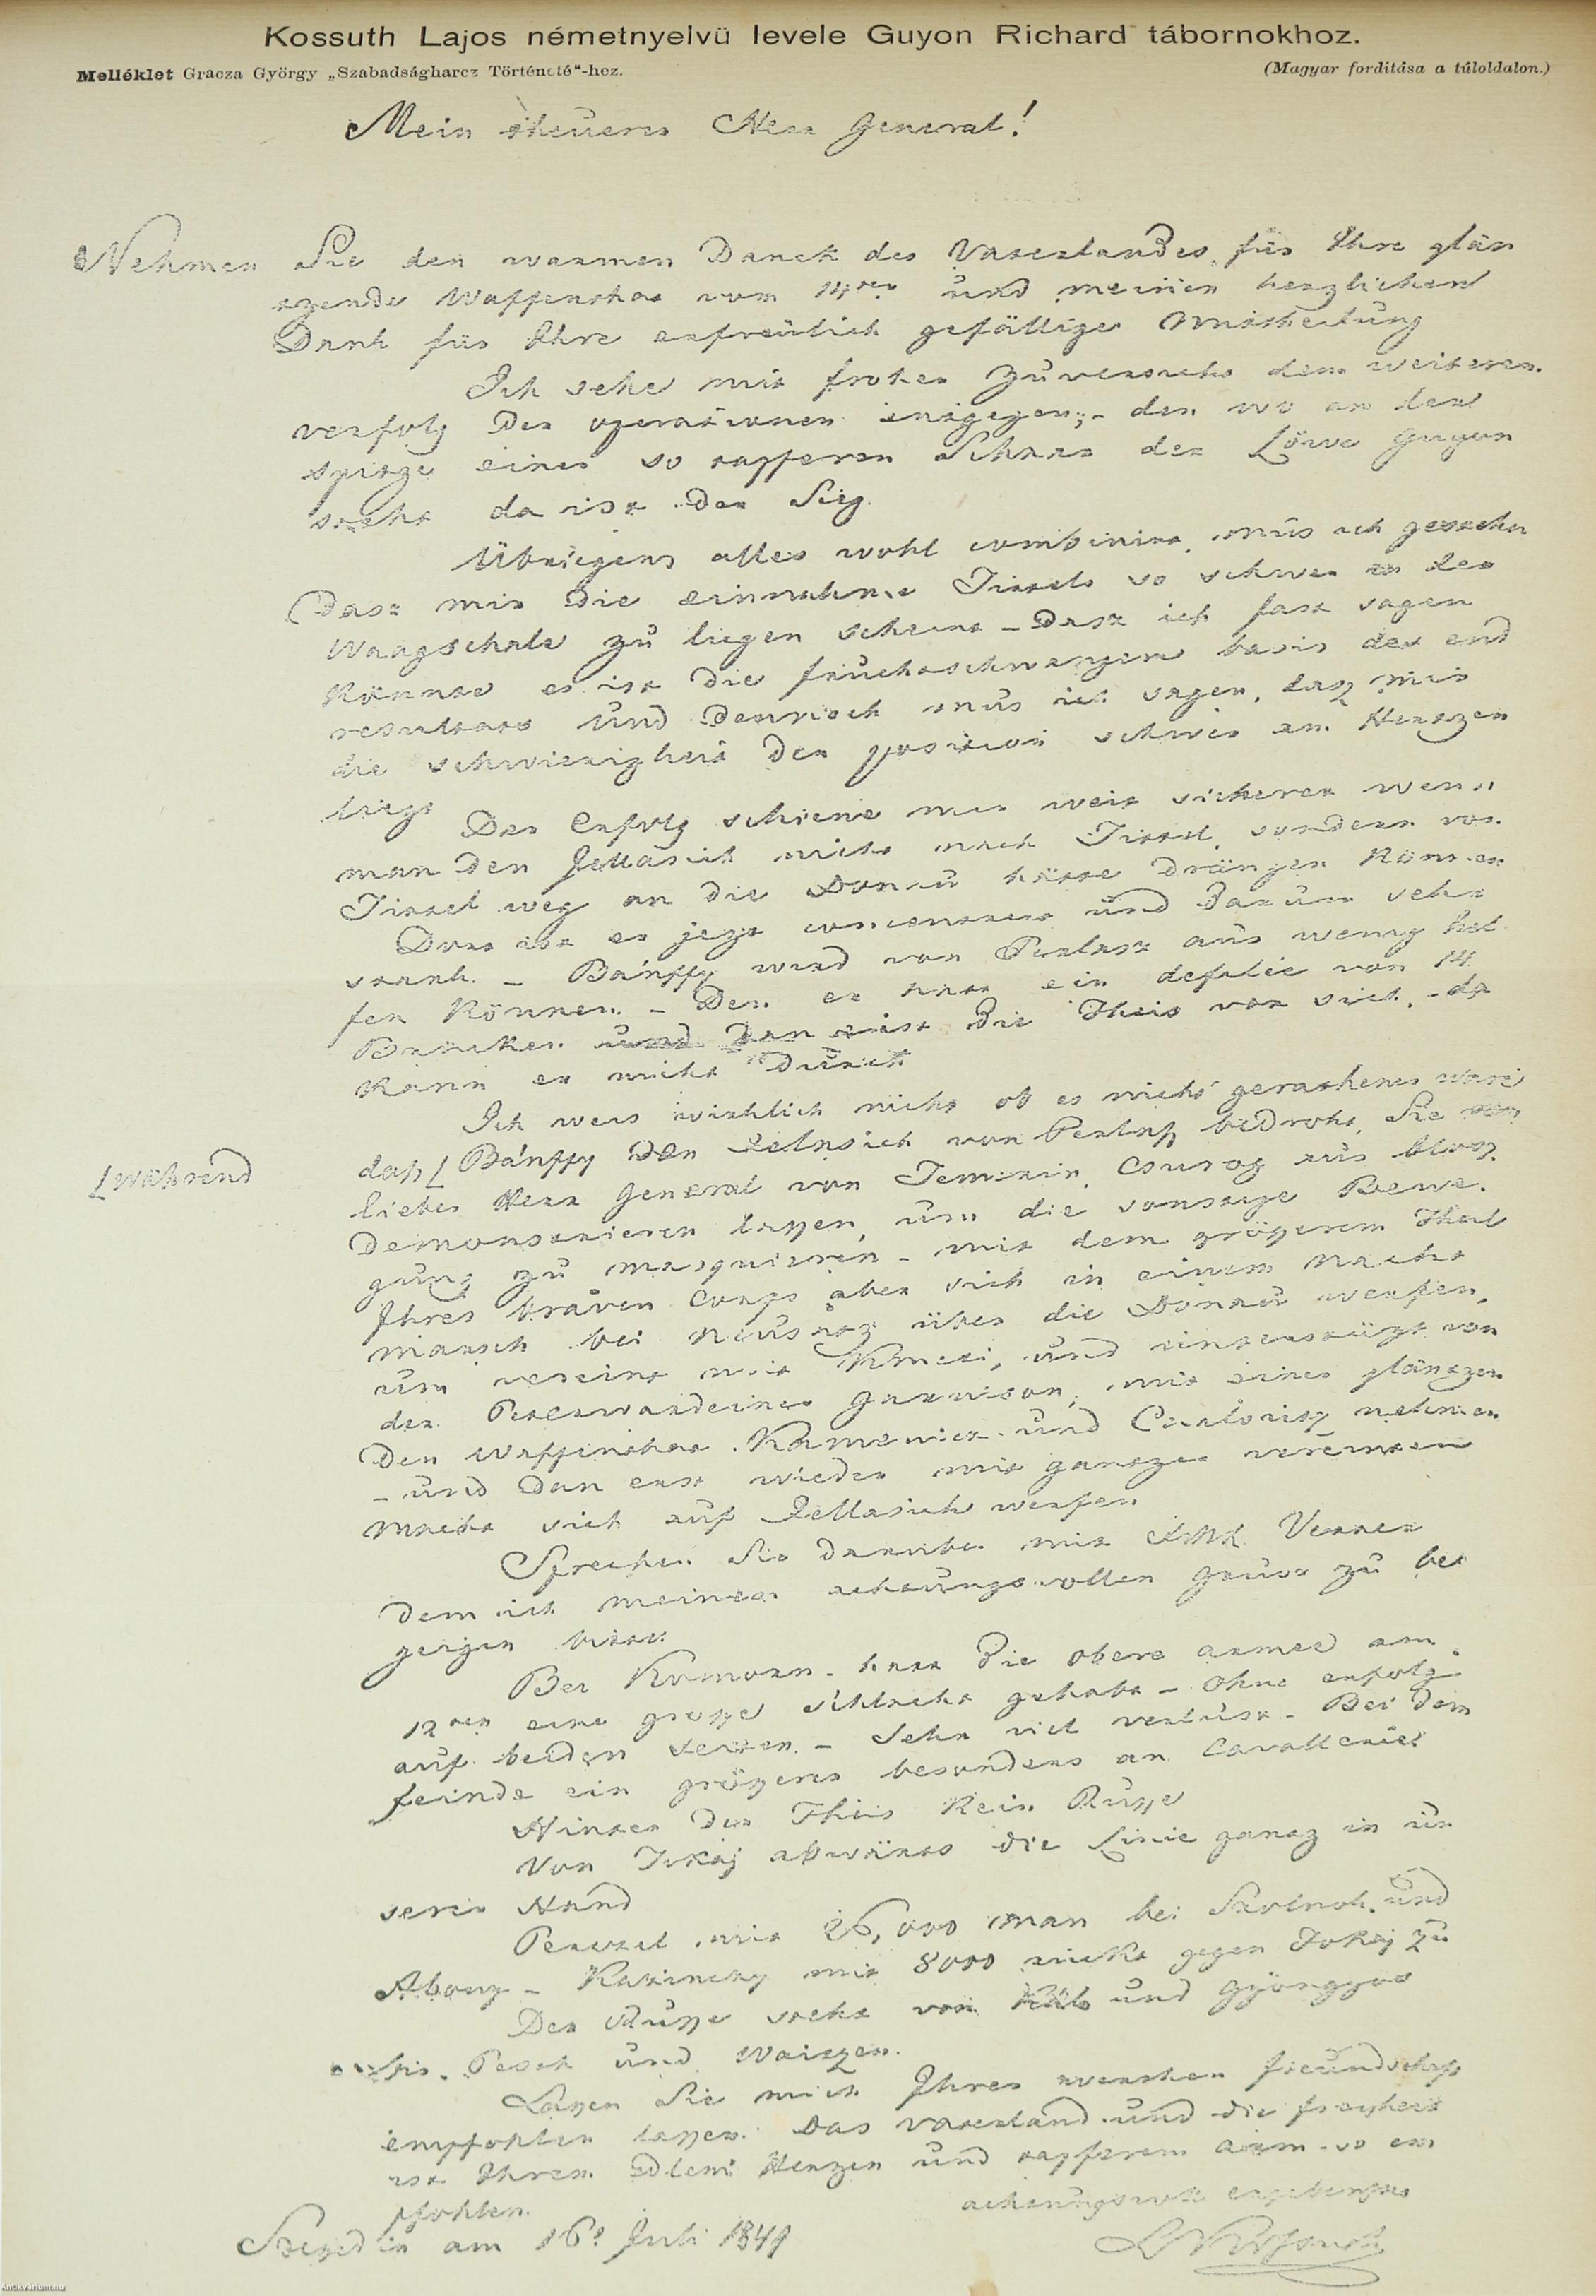 Kossuth Lajos németnyelvü levele Guyon Richard tábornokhoz.
Melléklet Gracza György „Szabadságharcz Története“-hez.
(Magyar forditása a túloldalon.)
Mein theuerer Herr General!
Nehmen Sie den warmen Danck des Vaterlandes, für Ihre glän
tzende Waffenthat vom 14ten und meinen herzlichen
Dank für Ihre erfreulich gefällige Mittheilung
Ich sehe mit froher Zuversicht dem weiteren
verfolg der operationen entgegen; - den wo an der
spitze einer so tapferen Schaar der Löwe Guyon
steht da ist der Sieg.
Übriegens alles wohl combinirt, mus ich gestehn
Dast mir die einnahme Tittels so schwer in der
Waagschale zu liegen scheint - Dast ich fast sagen
könnte es ist die fruchtschwangere basis des end
resultats und dennoch mus ich sagen, dasz mir
die schwierigkeit der position schwer am Hertzen
liegt
Der Erfolg schiene mir weit sicherer wenn
man den Jellasich nicht nach Tittel, sondern von
Tittel weg an die Donau hätte drängen können
Dort ist er jezt concentrirt und darum sehr
stark. - Bánffy wird von Perlasz aus wenig hel
fen können. - Den er hat ein defilée von 14
Brücken und dan erst die Theis vor sich, - da
kann er nicht durch
Ich weis wirklich nicht ob es nicht gerathener wäre
dasz [Bánffy den Jelasich von Perlasz bedroht, Sie
[während
lieber Herr General von Temerin, Csurog aus blosz
Demonstrieren laszen, um die sonstige Bewe-
gung zu masquieren - mit dem gröszerem Theil
Ihres braven Corps aber sich in einem Nacht
marsch bei Neusatz über die Donau werfen,
um vereint mit Kmeti, und unterstützt von
der Peterwardeiner Garnison, mit einer gläntzen
den Waffenthat Kamenicz und Carlovitz nehmen
- und dan erst wieder mit gantzer vereinten
Macht sich auf Jellasich werfen
Sprechen Sie darüber mit Vetter
dem ich meinen achtungsvollen Grus zu be
zeigen bitte.
Bei Komorn - hat die obere armee am
12ten eine grosze schlacht gehabt - Ohne erfolg
auf beiden seiten. - Sehr viel verlust - Bei dem
feinde ein gröszerer besonders an Cavallerie
Hinter der Theis kein Rusze
Von Tokaj abwärts die Linie gantz in un
serer Hand
Perczel mit 26,000 man bei Szolnok und
Abony - Kazinczy mit 8000 rückt gegen Tokaj zu
Der Rusze steht von Káls und Gyöngyös
bis Pesth und Waitzen.
Laszen Sie mich Ihrer werthen freundschaft
empfohlen laszen. Das Vaterland und die freyheit
ist Ihrem edlem Herzen und tapferem arm - so em
pfohlen.
achtungsvoll ergebenster
Szegedin am 16t Juli 1849
L Kossuth
Antikvarium.hu